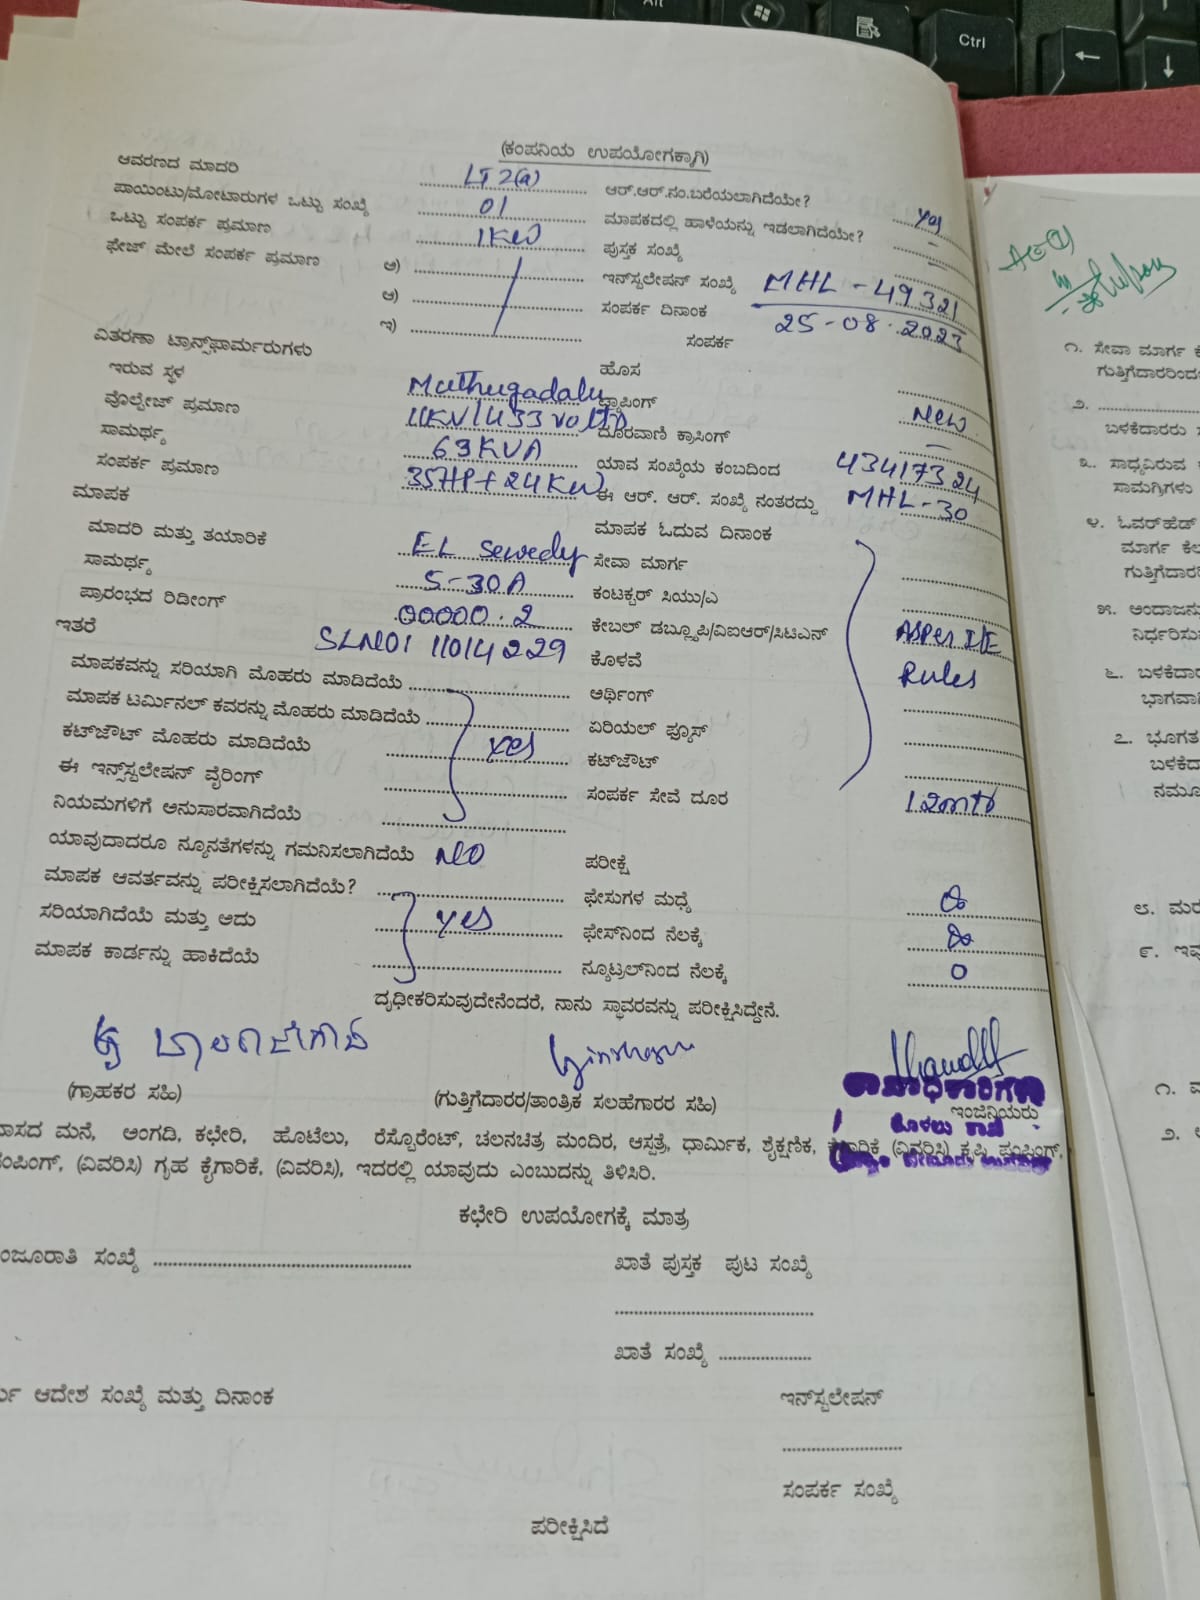 Alt
Ctrl
(ಕಂಪನಿಯ ಉಪಯೋಗಕ್ಕಾಗಿ)
ಆವರಣದ ಮಾದರಿ LT 2(a) ಆರ್.ಆರ್.ನಂ.ಬರೆಯಲಾಗಿದೆಯೇ? Yes
ಪಾಯಿಂಟು/ಮೋಟಾರುಗಳ ಒಟ್ಟು ಸಂಖ್ಯೆ 01 ಮಾಪಕದಲ್ಲಿ ಹಾಳೆಯನ್ನು ಇಡಲಾಗಿದೆಯೇ? –
ಒಟ್ಟು ಸಂಪರ್ಕ ಪ್ರಮಾಣ 1KW ಪುಸ್ತಕ ಸಂಖ್ಯೆ –
ಫೇಜ್ ಮೇಲೆ ಸಂಪರ್ಕ ಪ್ರಮಾಣ ಅ) ಇನ್‌ಸ್ಟಲೇಷನ್ ಸಂಖ್ಯೆ MHL - 49321
ಆ) ಸಂಪರ್ಕ ದಿನಾಂಕ 25-08-2023
ಇ) ಸಂಪರ್ಕ
ವಿತರಣಾ ಟ್ರಾನ್ಸ್‌ಫಾರ್ಮರುಗಳು ಹೊಸ
ಇರುವ ಸ್ಥಳ Muthugadalu ಟ್ಯಾಪಿಂಗ್ New
ವೊಲ್ಟೇಜ್ ಪ್ರಮಾಣ 11KV/433 volts ದೂರವಾಣಿ ಕ್ರಾಸಿಂಗ್ –
ಸಾಮರ್ಥ್ಯ 63KVA ಯಾವ ಸಂಖ್ಯೆಯ ಕಂಬದಿಂದ 43417324
ಸಂಪರ್ಕ ಪ್ರಮಾಣ 35HP+24KW ಈ ಆರ್. ಆರ್. ಸಂಖ್ಯೆ ನಂತರದ್ದು MHL-30
ಮಾಪಕ ಮಾಪಕ ಓದುವ ದಿನಾಂಕ
ಮಾದರಿ ಮತ್ತು ತಯಾರಿಕೆ EL sewedy ಸೇವಾ ಮಾರ್ಗ
ಸಾಮರ್ಥ್ಯ 5-30A ಕಂಟಕ್ಟರ್ ಸಿಯು/ಎ
ಪ್ರಾರಂಭದ ರಿಡೀಂಗ್ 00000.2 ಕೇಬಲ್ ಡಬ್ಲ್ಯೂಪಿ/ವಿಐಆರ್/ಸಿಟಿಎನ್ ASPer I/E
ಇತರೆ SLNO1 11014229 ಕೊಳವೆ Rules
ಮಾಪಕವನ್ನು ಸರಿಯಾಗಿ ಮೊಹರು ಮಾಡಿದೆಯೆ ಅರ್ಥಿಂಗ್
ಮಾಪಕ ಟರ್ಮಿನಲ್ ಕವರನ್ನು ಮೊಹರು ಮಾಡಿದೆಯೆ ಏರಿಯಲ್ ಫ್ಯೂಸ್
ಕಟ್‌ಜೌಟ್ ಮೊಹರು ಮಾಡಿದೆಯೆ yes ಕಟ್‌ಜೌಟ್
ಈ ಇನ್ಸ್‌ಸ್ಟಲೇಷನ್ ವೈರಿಂಗ್ ಸಂಪರ್ಕ ಸೇವೆ ದೂರ 12mts
ನಿಯಮಗಳಿಗೆ ಅನುಸಾರವಾಗಿದೆಯೆ
ಯಾವುದಾದರೂ ನ್ಯೂನತೆಗಳನ್ನು ಗಮನಿಸಲಾಗಿದೆಯೆ NO ಪರೀಕ್ಷೆ
ಮಾಪಕ ಆವರ್ತವನ್ನು ಪರೀಕ್ಷಿಸಲಾಗಿದೆಯೆ? ಫೇಸುಗಳ ಮಧ್ಯೆ
ಸರಿಯಾಗಿದೆಯೆ ಮತ್ತು ಅದು yes ಫೇಸ್‌ನಿಂದ ನೆಲಕ್ಕೆ
ಮಾಪಕ ಕಾರ್ಡನ್ನು ಹಾಕಿದೆಯೆ ನ್ಯೂಟ್ರಲ್‌ನಿಂದ ನೆಲಕ್ಕೆ 0
ದೃಢೀಕರಿಸುವುದೇನೆಂದರೆ, ನಾನು ಸ್ಥಾವರವನ್ನು ಪರೀಕ್ಷಿಸಿದ್ದೇನೆ.
(ಗ್ರಾಹಕರ ಸಹಿ) (ಗುತ್ತಿಗೆದಾರರ/ತಾಂತ್ರಿಕ ಸಲಹೆಗಾರರ ಸಹಿ) ಇಂಜಿನಿಯರು
ವಾಸದ ಮನೆ, ಅಂಗಡಿ, ಕಛೇರಿ, ಹೊಟೆಲು, ರೆಸ್ಟೊರೆಂಟ್, ಚಲನಚಿತ್ರ ಮಂದಿರ, ಆಸ್ಪತ್ರೆ, ಧಾರ್ಮಿಕ, ಶೈಕ್ಷಣಿಕ, ಕೈಗಾರಿಕೆ (ವಿವರಿಸಿ) ಕೃಷಿ ಪಂಪಿಂಗ್,
ಪಂಪಿಂಗ್, (ವಿವರಿಸಿ) ಗೃಹ ಕೈಗಾರಿಕೆ, (ವಿವರಿಸಿ), ಇದರಲ್ಲಿ ಯಾವುದು ಎಂಬುದನ್ನು ತಿಳಿಸಿರಿ.
ಕಛೇರಿ ಉಪಯೋಗಕ್ಕೆ ಮಾತ್ರ
ಮಂಜೂರಾತಿ ಸಂಖ್ಯೆ ಖಾತೆ ಪುಸ್ತಕ ಪುಟ ಸಂಖ್ಯೆ
ಖಾತೆ ಸಂಖ್ಯೆ
ಆದೇಶ ಸಂಖ್ಯೆ ಮತ್ತು ದಿನಾಂಕ ಇನ್‌ಸ್ಟಲೇಷನ್
ಸಂಪರ್ಕ ಸಂಖ್ಯೆ
ಪರೀಕ್ಷಿಸಿದೆ
೧. ಸೇವಾ ಮಾರ್ಗ
ಗುತ್ತಿಗೆದಾರರಿಂದ
೨.
ಬಳಕೆದಾರರು
೩. ಸಾಧ್ಯವಿರುವ
ಸಾಮಗ್ರಿಗಳು
೪. ಓವರ್‌ಹೆಡ್
ಮಾರ್ಗ
೫. ಅಂದಾಜನು
೬. ಬಳಕೆದಾ
೭. ಭೂಗತ
೮. ಮರ
೯. ಇವ
೧.
೨.